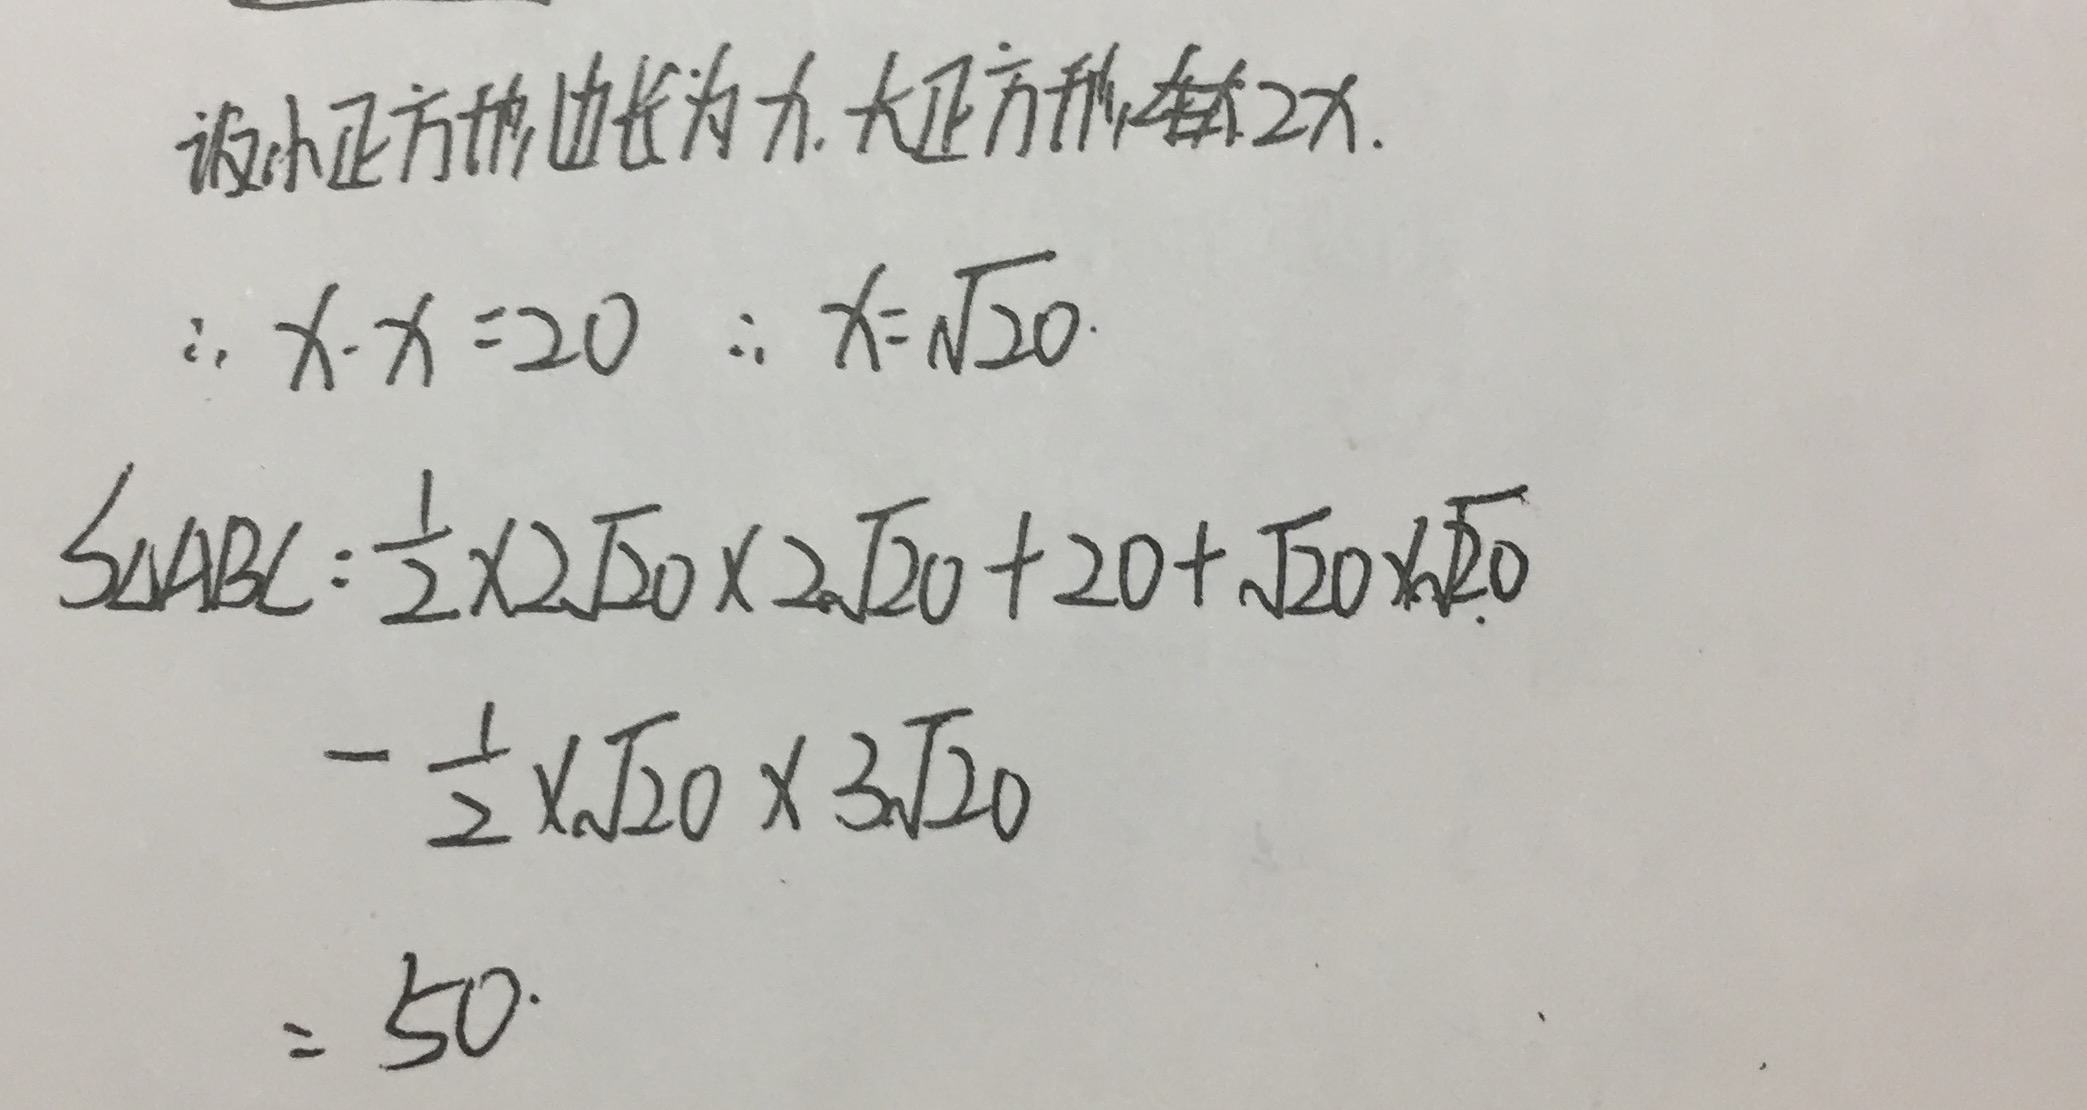 设小正方形边长为x.大正方形2x.
∴ x·x=20 ∴ x=√20.
S△ABC=1/2×2√20×2√20+20+√20×√20
-1/2×√20×3√20
=50.